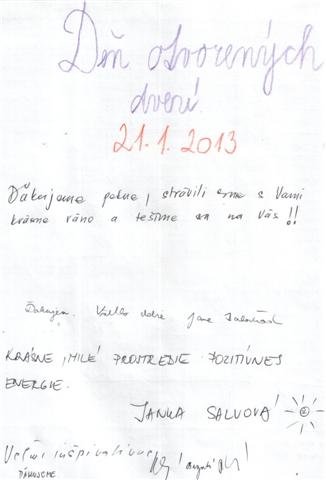 Dň otvorených
dverí
21.1.2013
Ďakujeme pekne, strávili sme s Vami
krásne ráno a tešíme sa na Vás!!
Ďakujem. Všetko dobré Jana
KRÁSNE, MILÉ PROSTREDIE POZITÍVNEJ
ENERGIE.
JANKA SALVOVÁ!
Veľmi inšpiratívne
ĎAKUJEME